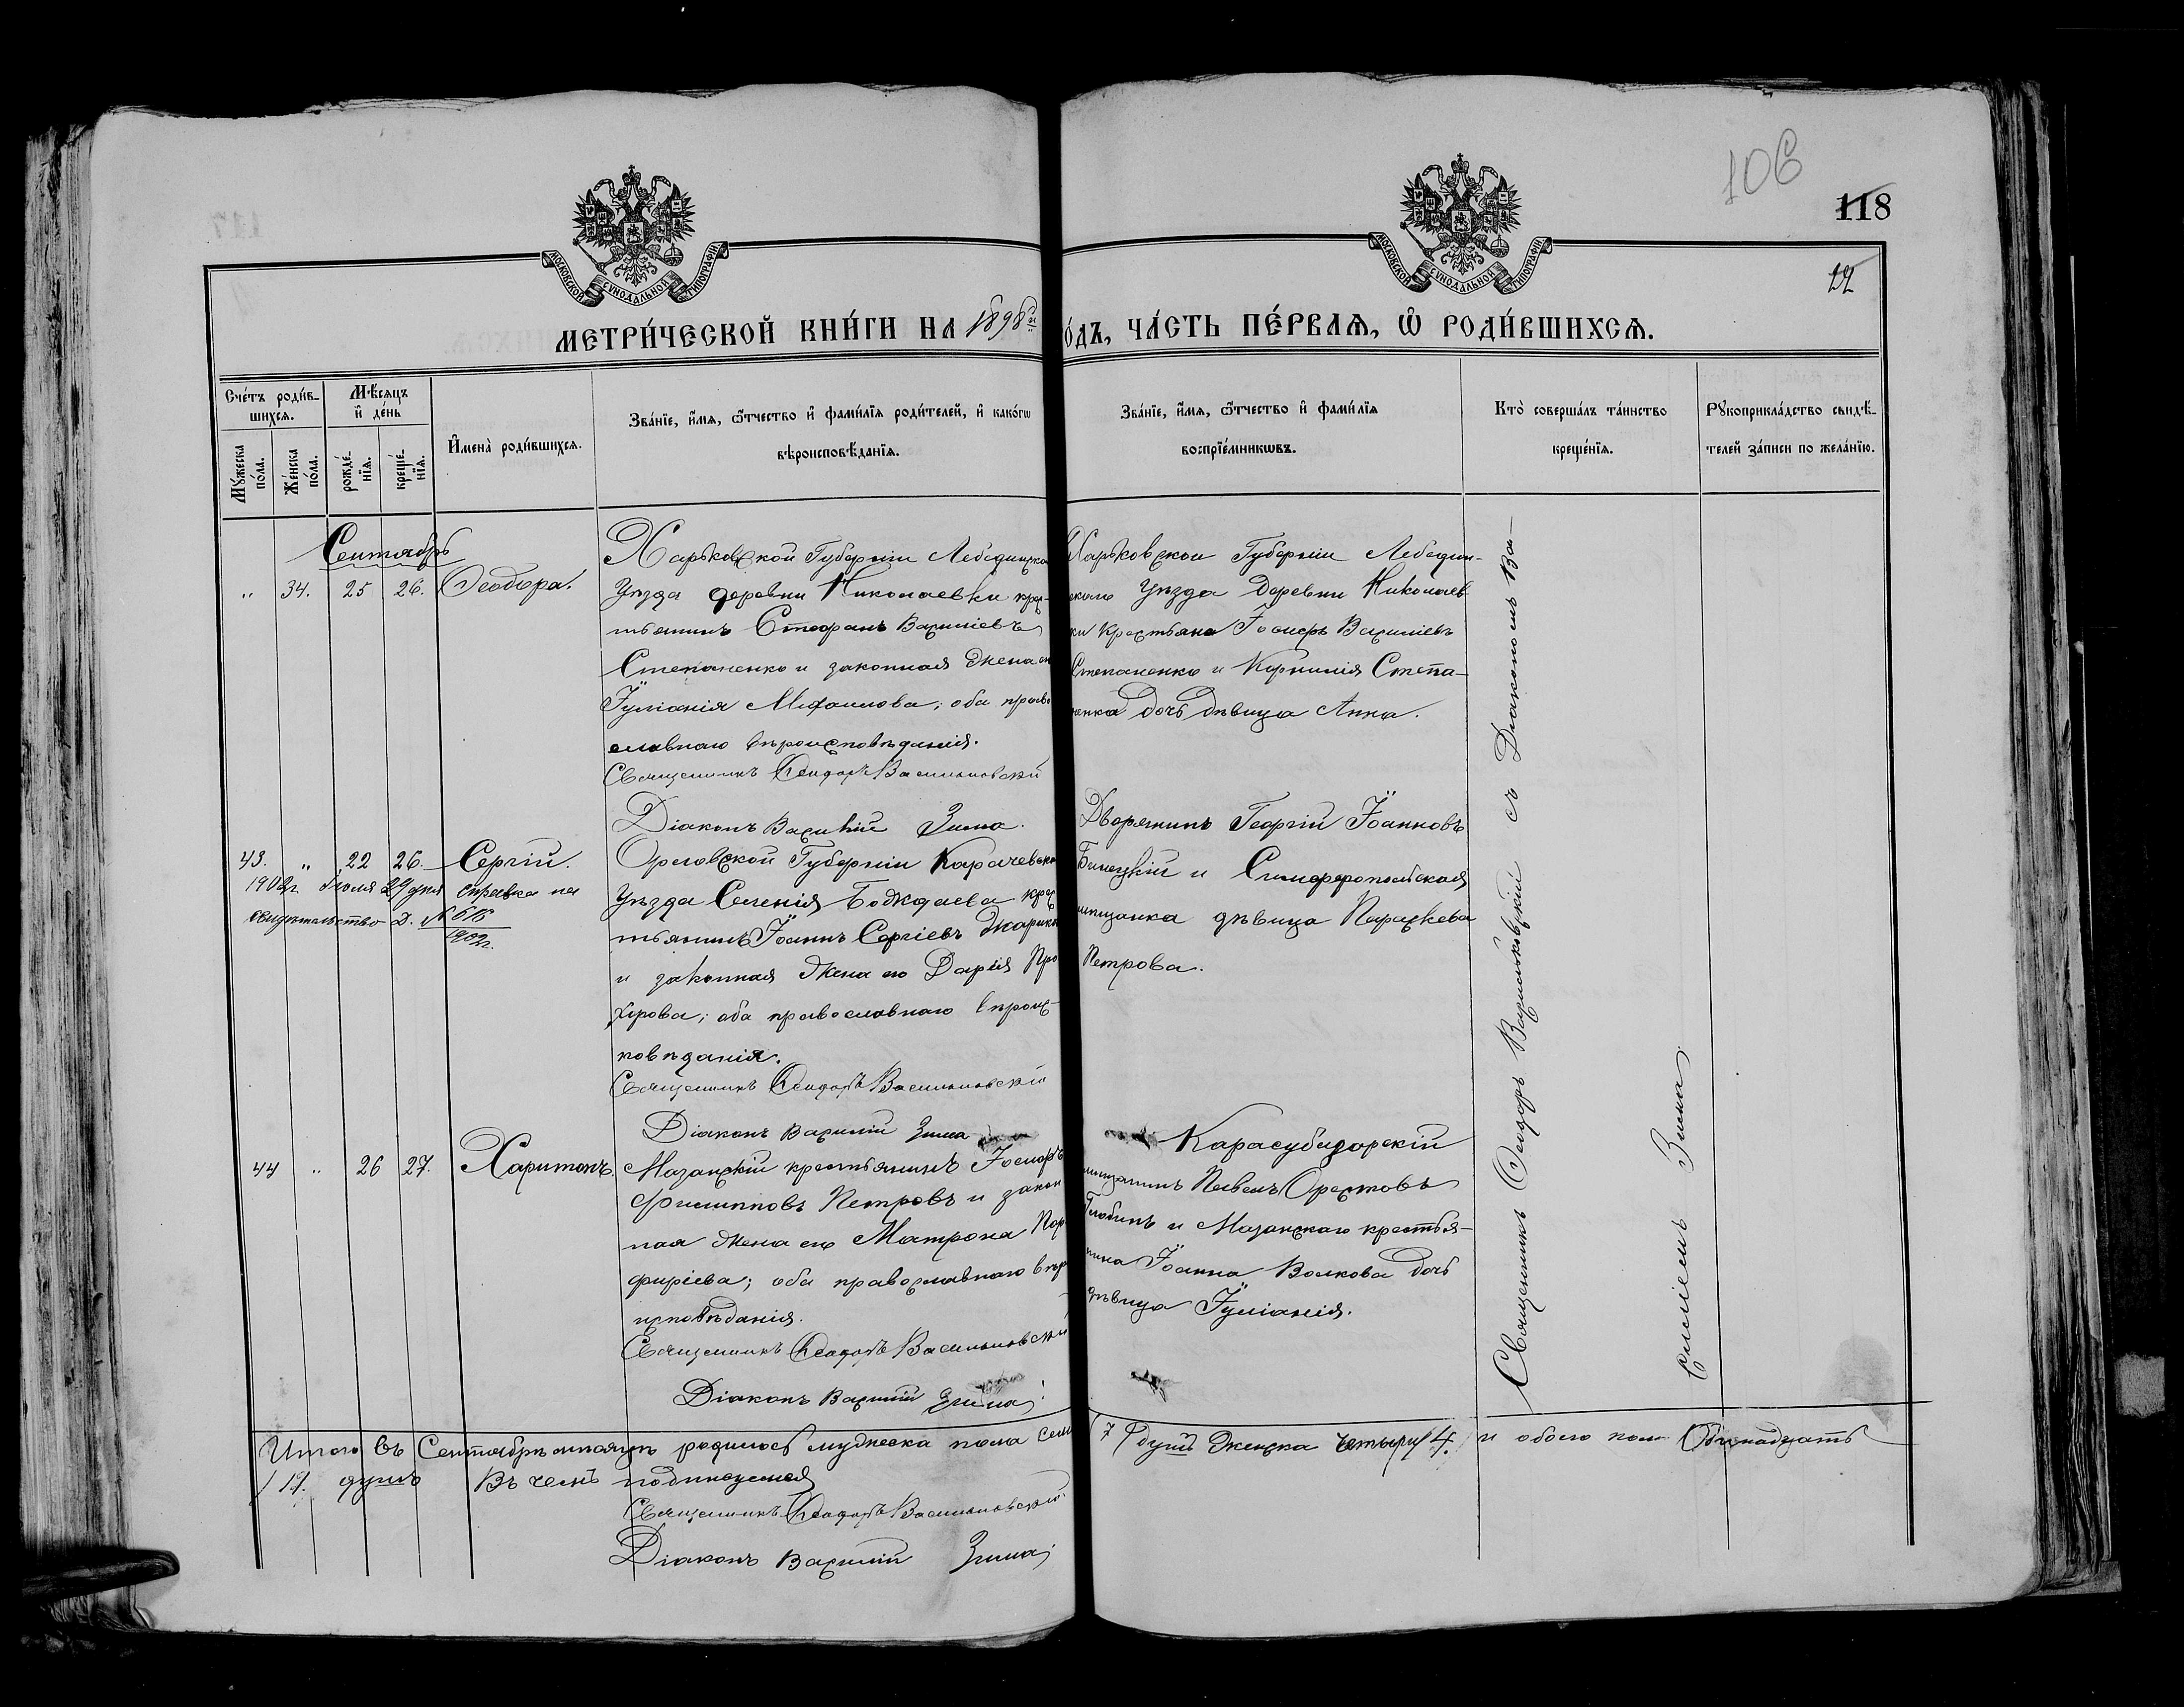 106
118
12
МОСКОВСКОЙ СѴНОДАЛЬНОЙ ТИПОГРАФІИ
МОСКОВСКОЙ СѴНОДАЛЬНОЙ ТИПОГРАФІИ
МЕТРИ́ЧЕСКОЙ КНИ́ГИ НА 1898й
О́ДЪ, ЧА́СТЬ ПЕ́РВАѦ, Ѿ РОДИ́ВШИХСѦ.
Сче́тъ роди́в-
шихсѧ.
Мꙋ́жеска
по́ла.
Же́нска
по́ла.
Мѣ́сѧцъ
и҆ де́нь
рожде́-
нїѧ.
креще́-
нїѧ.
И҆мена̀ роди́вшихсѧ.
Зва́нїе, и҆́мѧ, ѻ҆́тчество и҆ фами́лїѧ роди́телей, и҆ како́гѡ
вѣроисповѣ́данїѧ.
Зва́нїе, и҆́мѧ, ѻ҆́тчество и҆ фами́лїѧ
воспрїе́мникѡвъ.
Кто̀ соверша́лъ та́инство
креще́нїѧ.
Рꙋкоприкла́дство свидѣ́-
телей за́писи по жела́нїю.
Сентябрь
„ 34. 25 26. Ѳеодора.
Харьковской Губерніи Лебединска
Уѣзда деревни Николаевки крес-
тьянинъ Стефанъ Василіевъ
Степаненко и законная жена ею
Іуліанія Михаилова; оба право
славнаго вѣроисповѣданія.
Священникъ Ѳеодоръ Васильковскій
Діаконъ Василій Зима.
Харьковской Губерніи Лебедин-
скаго Уѣзда Деревни Николаев
ки Крестьяне Іосифъ Василіевъ
Степаненко и Корнилія Степа-
ненка дочь дѣвица Анна.
43. „ 22 26. Сергій.
1902г. Іюля 29 дня справка на
свидѣтельство Д. №
1902г.
Орловской Губерніи Карачевска
Уѣзда Селенія Бодждаева крес
тьянинъ Іоаннъ Сергіевъ
и законная жена его Дарія Про
хорова; оба православнаго вѣроис-
повѣданія.
Священникъ Ѳеодоръ Васильковскій
Діаконъ Василій Зима
Дворянинъ Георгій Іоанновъ
и Симферопольская
мѣщанка дѣвица Параскева
Петрова.
44 „ 26 27. Харитонъ.
Мазанскій крестьянинъ Іосифъ
Филипповъ Петровъ и закон
ная жена его Матрона Пор
фиріева; оба православнаго вѣро
исповѣданія.
Священникъ Ѳеодоръ Васильковскій
Діаконъ Василій Зима
Карасубазарскій
мѣщанинъ Павелъ Орестовъ
и Мазанскаго крестья-
нина Іоанна Волкова дочь
дѣвица Іуліанія.
Священникъ Ѳеодоръ Васильковскій съ Діакономъ Ва-
силіемъ Зима
Итого въ Сентябрѣ мѣсяцѣ родилось мужеска пола семь
7 душъ женска четыре 4. и обоего пола Одинадцать
11. душъ Въ чемъ подписуемся
Священникъ Ѳеодоръ Васильковскій
Діаконъ Василій Зима